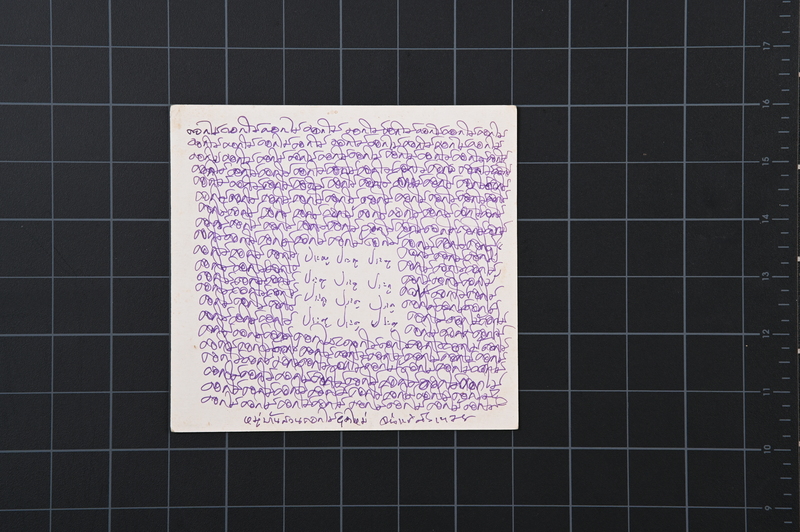 ดอกไม้ดอกไม้ดอกไม้ดอกไม้ดอกไม้ดอกไม้ดอกไม้ดอกไม้
ดอกไม้ดอกไม้ดอกไม้ดอกไม้ดอกไม้ดอกไม้ดอกไม้ดอกไม้ดอกไม้
ดอกไม้ดอกไม้ดอกไม้ดอกไม้ดอกไม้ดอกไม้ดอกไม้ดอกไม้ดอกไม้
ดอกไม้ดอกไม้ดอกไม้ดอกไม้ดอกไม้ดอกไม้ดอกไม้ดอกไม้ดอกไม้
ดอกไม้ดอกไม้ดอกไม้ดอกไม้ดอกไม้ดอกไม้ดอกไม้ดอกไม้ดอกไม้
ดอกไม้ดอกไม้ดอกไม้ดอกไม้ดอกไม้ดอกไม้ดอกไม้ดอกไม้ดอกไม้
ดอกไม้ดอกไม้ดอกไม้ดอกไม้ดอกไม้ดอกไม้ดอกไม้ดอกไม้ดอกไม้
ดอกไม้ดอกไม้ดอกไม้ดอกไม้ดอกไม้ดอกไม้ดอกไม้ดอกไม้ดอกไม้
ดอกไม้ดอกไม้ดอกไม้ดอกไม้ดอกไม้ดอกไม้ดอกไม้ดอกไม้ดอกไม้
ดอกไม้ดอกไม้ดอกไม้ ประตู ประตู ประตู ดอกไม้ดอกไม้ดอกไม้
ดอกไม้ดอกไม้ดอกไม้ ดอกไม้ดอกไม้ดอกไม้
ดอกไม้ดอกไม้ดอกไม้ ประตู ประตู ประตู ดอกไม้ดอกไม้ดอกไม้
ดอกไม้ดอกไม้ดอกไม้ ดอกไม้ดอกไม้ดอกไม้
ดอกไม้ดอกไม้ดอกไม้ ประตู ประตู ประตู ดอกไม้ดอกไม้ดอกไม้
ดอกไม้ดอกไม้ดอกไม้ ประตู ประตู ประตู ดอกไม้ดอกไม้ดอกไม้
ดอกไม้ดอกไม้ดอกไม้ดอกไม้ดอกไม้ดอกไม้ดอกไม้ดอกไม้ดอกไม้
ดอกไม้ดอกไม้ดอกไม้ดอกไม้ดอกไม้ดอกไม้ดอกไม้ดอกไม้ดอกไม้
ดอกไม้ดอกไม้ดอกไม้ดอกไม้ดอกไม้ดอกไม้ดอกไม้ดอกไม้ดอกไม้
ดอกไม้ดอกไม้ดอกไม้ดอกไม้ดอกไม้ดอกไม้ดอกไม้ดอกไม้ดอกไม้
ดอกไม้ดอกไม้ดอกไม้ดอกไม้ดอกไม้ดอกไม้ดอกไม้ดอกไม้ดอกไม้
หมู่บ้านสวนดอกไม้
17
16
15
14
13
12
11
10
9